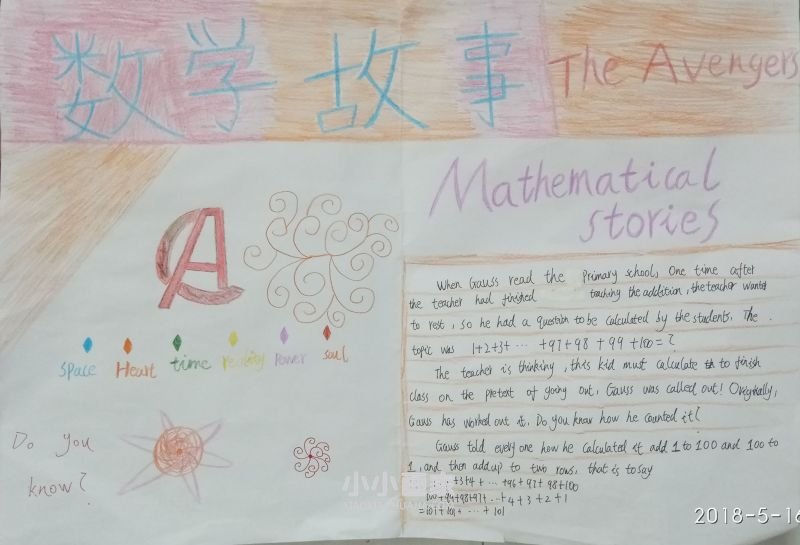 数学故事 The Avengers
Mathematical
stories
A
space Heart time reality Power soul
Do you
know?
When Gauss read the primary school, One time after
the teacher had finished teaching the addition, the teacher wanted
to rest, so he had a question to be calculated by the students. The
topic was 1+2+3+ ··· +97+98 +99 +100=?
The teacher is thinking, this kid must calculate to finish
class on the pretext of going out, Gauss was called out! Originally,
Gauss has worked out it. Do you know how he counted it?
Gauss told every one how he calculated it add 1 to 100 and 100 to
1, and then add up to two rows, that is to say
+3+4+ ··· +96+97+98+100
100+99+98+97+ ··+4+3+2+1
=101+101+ ··· +101
小小
2018-5-16